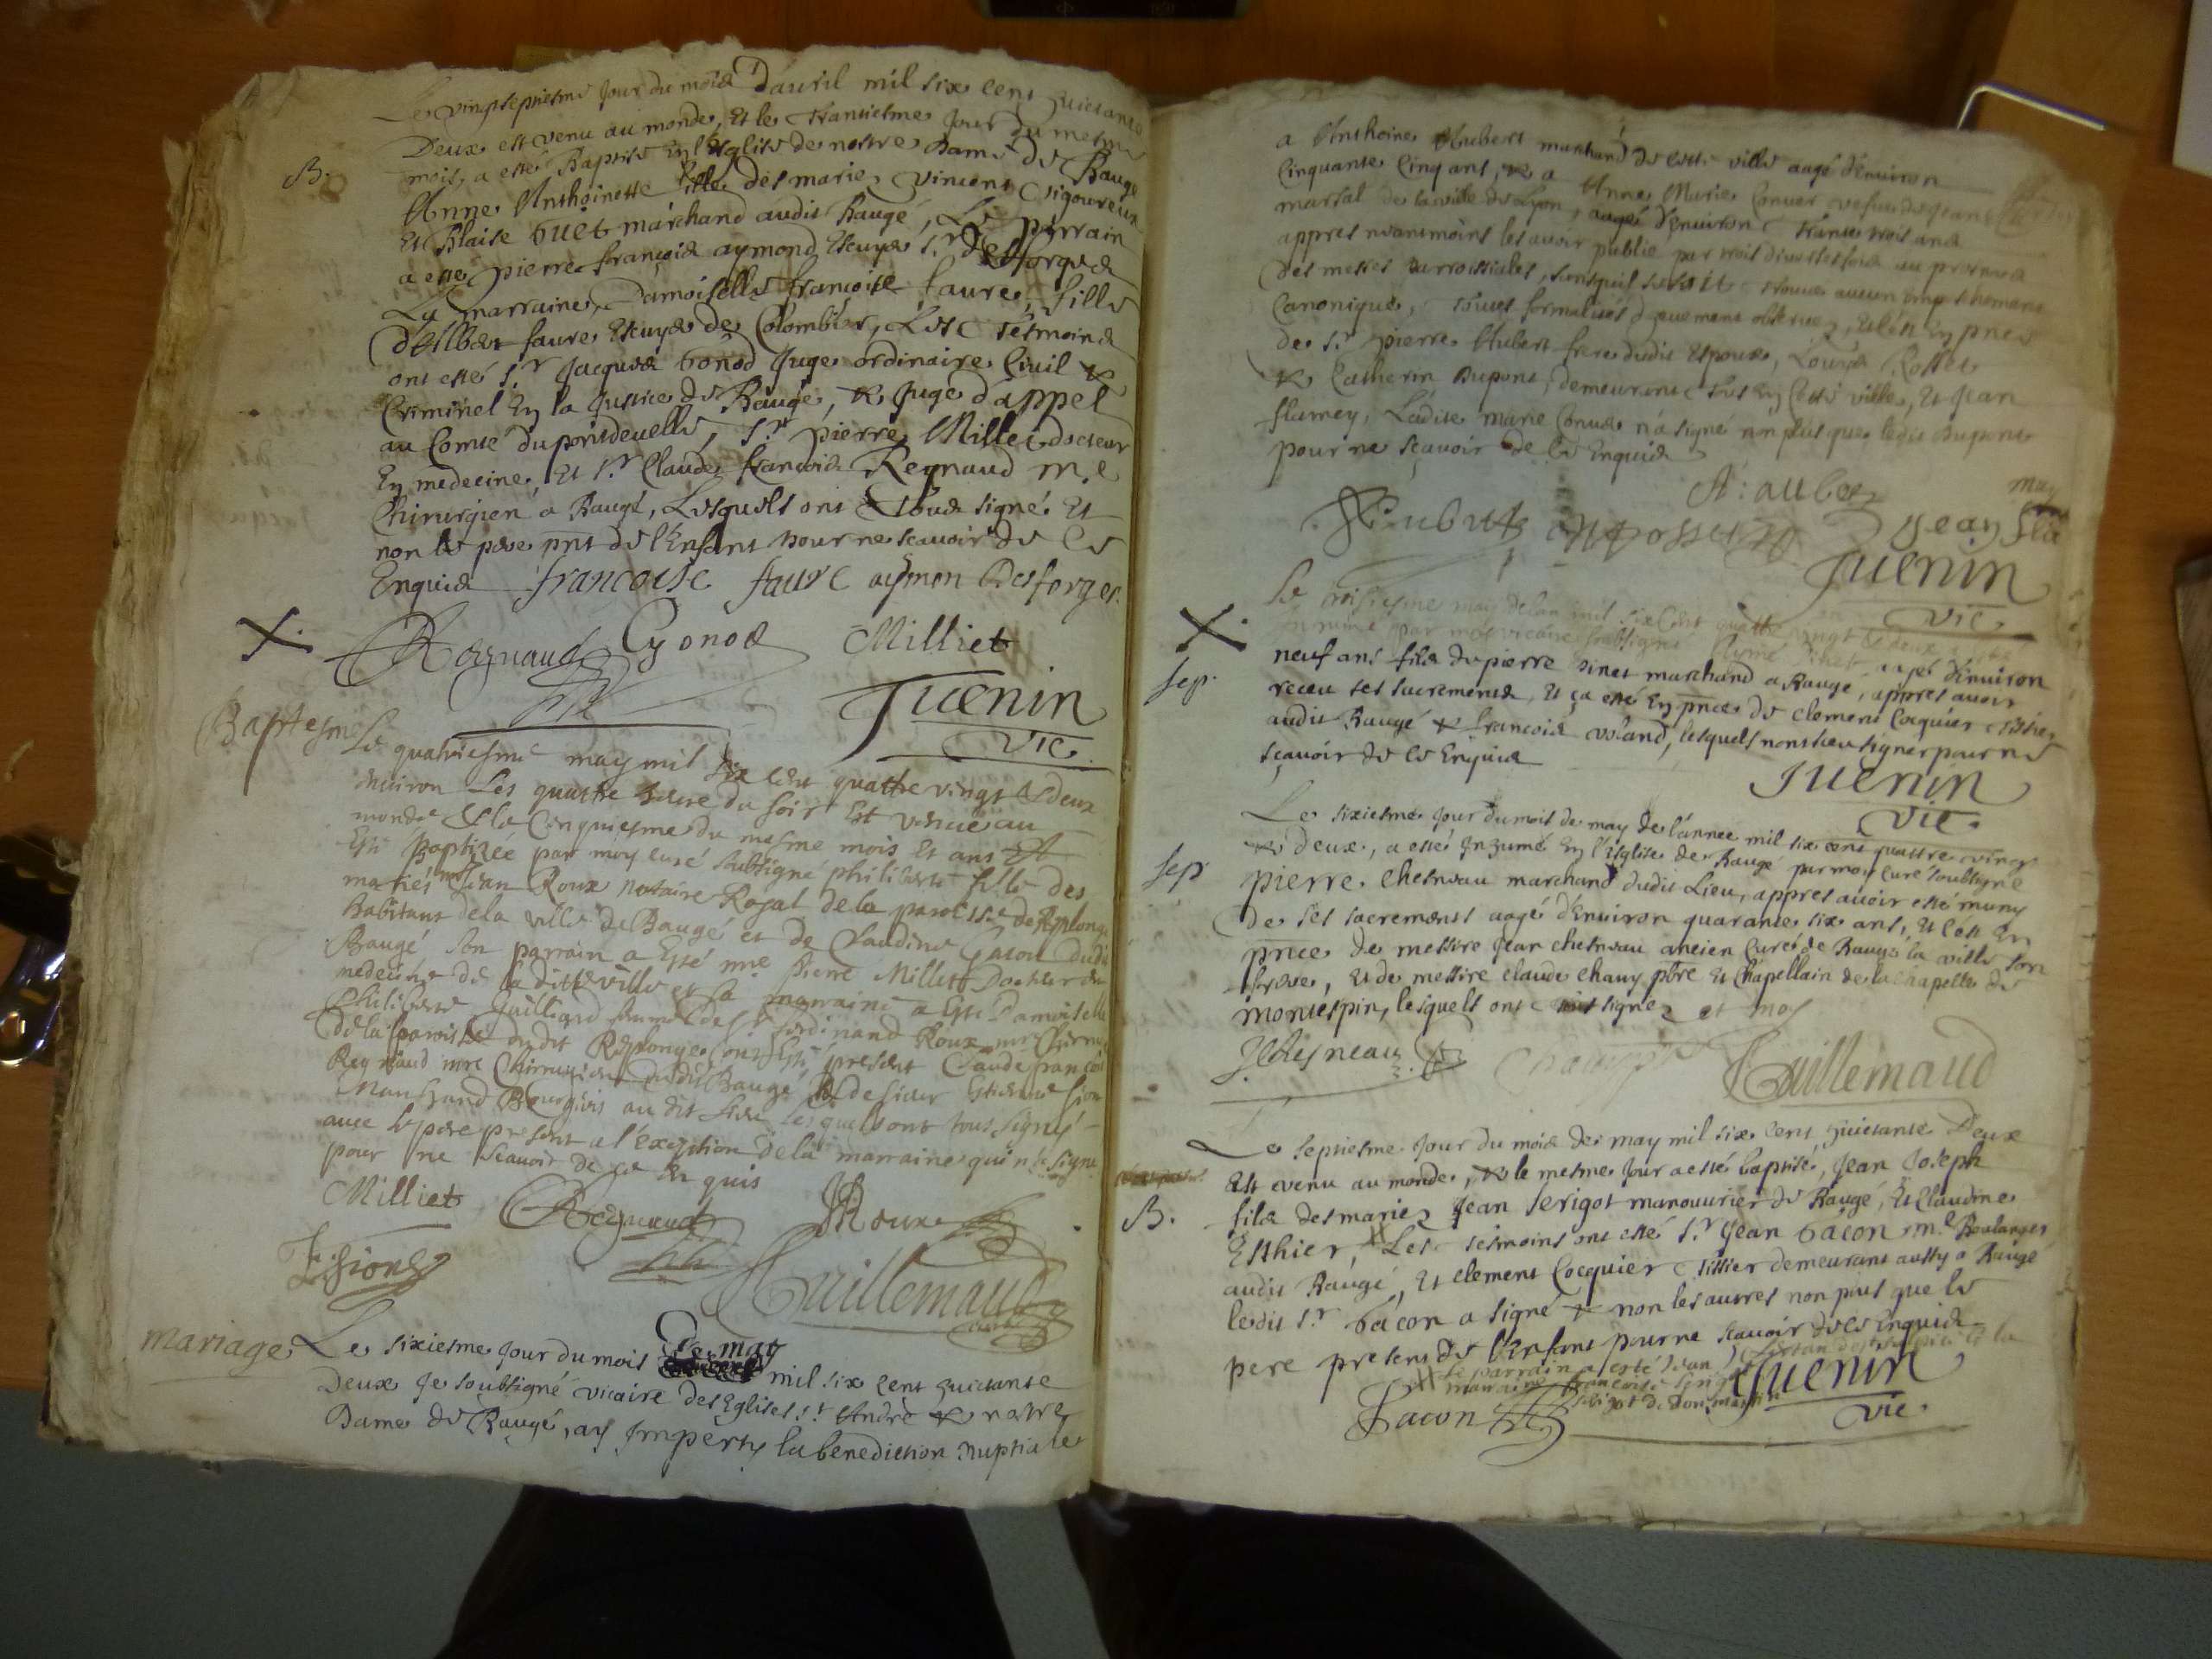 Le vingtseptiesme Jour du mois d'auril mil six cens huictante
Deux est venu au monde, et le trantiesme Jour du mesme
mois, a esté Baptisé en l'Esglise de nostre Dame de Baugé
B.
Anne Anthoinette fille des mariez Vincent Vigoureux
Et Blaise Guet marchand audit Baugé, Le parrain
a esté pierre françois aymond Escuyer Sr Desforges
La marraine, Damoiselle francoise faure, fille
D'Alber faure Escuyer de Colombier, Les tesmoins
ont esté Sr Jacques Gonod Juge ordinaire Civil &
Criminel En la Justice de Baugé, & Juge d'appel
au Comté du pontdeuelle, Sr pierre Milliet docteur
En medecine, Et Sr Claude francois Regnaud me
Chirurgien a Baugé, Lesquels ont tous signé Et
non le pere pnt de l'Enfant pour ne scauoir de ce
Enquis francoise faure aymon Desforges
Regnaud Gonod Milliet
Guenin
Vic.
Baptesme
Le quatriesme may mil six cent quattre vingt & deux
enuiron Les quattre heure du soir Est venue au
monde & le Cinquiesme du mesme mois Et ans A
Esté Baptizée par moy curé soubsigné philiberte fille des
mariés Me Jean Roux notaire Royal de la paroisse de Replonge
habitant de la ville de Baugé et de Claudine Gacon dudit
Baugé son parrain a Esté me Pierre Milliet Docteur en
medecine de laditte ville et sa marraine a Esté Damoiselle
Philiberte Guilliard femme de Sr ferdinand Roux me Chirur
de la paroisse dudit Replonge Con Esté present Claude françois
Regnaud me Chirurgien dudit Baugé & de sieur Estienne Sion
Marchand Bourgeois au dit Lieu lesquels ont tous signés
auec le pere present a l'exception de la marraine qui n'a signé
pour ne scauoir de ce Enquis
Milliet Regnaud JRoux
E. Sion
Guillemaud
curé
mariage Le sixiesme Jour du mois de may mil six cens huictante
Deux Je soubsigné vicaire des Eglises St André & nostre
Dame de Baugé, ay Imperty la benediction nuptiale
a Anthoine Aubert marchand de cette ville aagé d'enuiron
Cinquante Cinq ans, & a Anne Marie Conuer vefue de Jean
martal de la ville de Lyon, aagée d'enuiron trante trois ans
appres neantmoins les auoir publié par trois diuerses fois au prosne
des messes parroissiales, sans quil se soit trouué aucun Empechement
Canonique, toutes formalités deuement obseruez, et c'est En pnce
de Sr pierre Aubert frere dudit Espoux, Louys Rosset
& Catherin Dupont, demeurant tous En cette ville, Et Jean
flamey, Ladite marie Conuer n'a signé non plus que ledit Dupont
pour ne sçauoir de ce Enquis
A: aubert
P. Aubert Rosset Jean flamey
Guenin
vic.
Le troisiesme may de lan mil six Cent quattre vingt & deux a esté
Inhumé par moy vicaire soubsigné Aymé Pinet aagé d'enuiron
Sep.
neuf ans fils de pierre Pinet marchand a Baugé, appres auoir
receu ses sacrements, Et ça esté En pnce de Clement Cocquier tissier
audit Baugé & francois voland, lesquels nont sceu signer pour ne
sçauoir de ce Enquis
Guenin
vic.
Le sixiesme Jour du mois de may de l'année mil six cens quattre vings
& deux, a esté Inhumé En l'Esglise de Baugé par moy Curé soubsigné
Sep
pierre Chesneau marchand dudit Lieu, appres auoir esté muny
de ses sacrements aagé d'enuiron quarante six ans, Et c'est En
pnce de messire Jean Chesneau ancien Curé de Baugé la ville son
frere, Et de messire Claude Chauy pbre Et Chapellain de la chapelle de
montespin, lesquels ont signez et moy
J. Chesneau Chauy
Guillemaud
Le septiesme Jour du mois de may mil six cens huictante Deux
Est venu au monde, & le mesme Jour a esté baptisé, Jean Joseph
B.
fils des mariez Jean Serigot manouurier de Baugé, Et Claudine
Esthier, # Les tesmoins ont esté Sr Jean Gacon me Boulanger
audit Baugé, Et Clement Cocquier tissier demeurant aussy a Baugé
ledit Sr Gacon a signé & non les autres non plus que le
pere present de l'Enfant pour ne scauoir de ce Enquis
# Le parrain a esté Jean
marraine francoise
Gacon Guenin
vic.